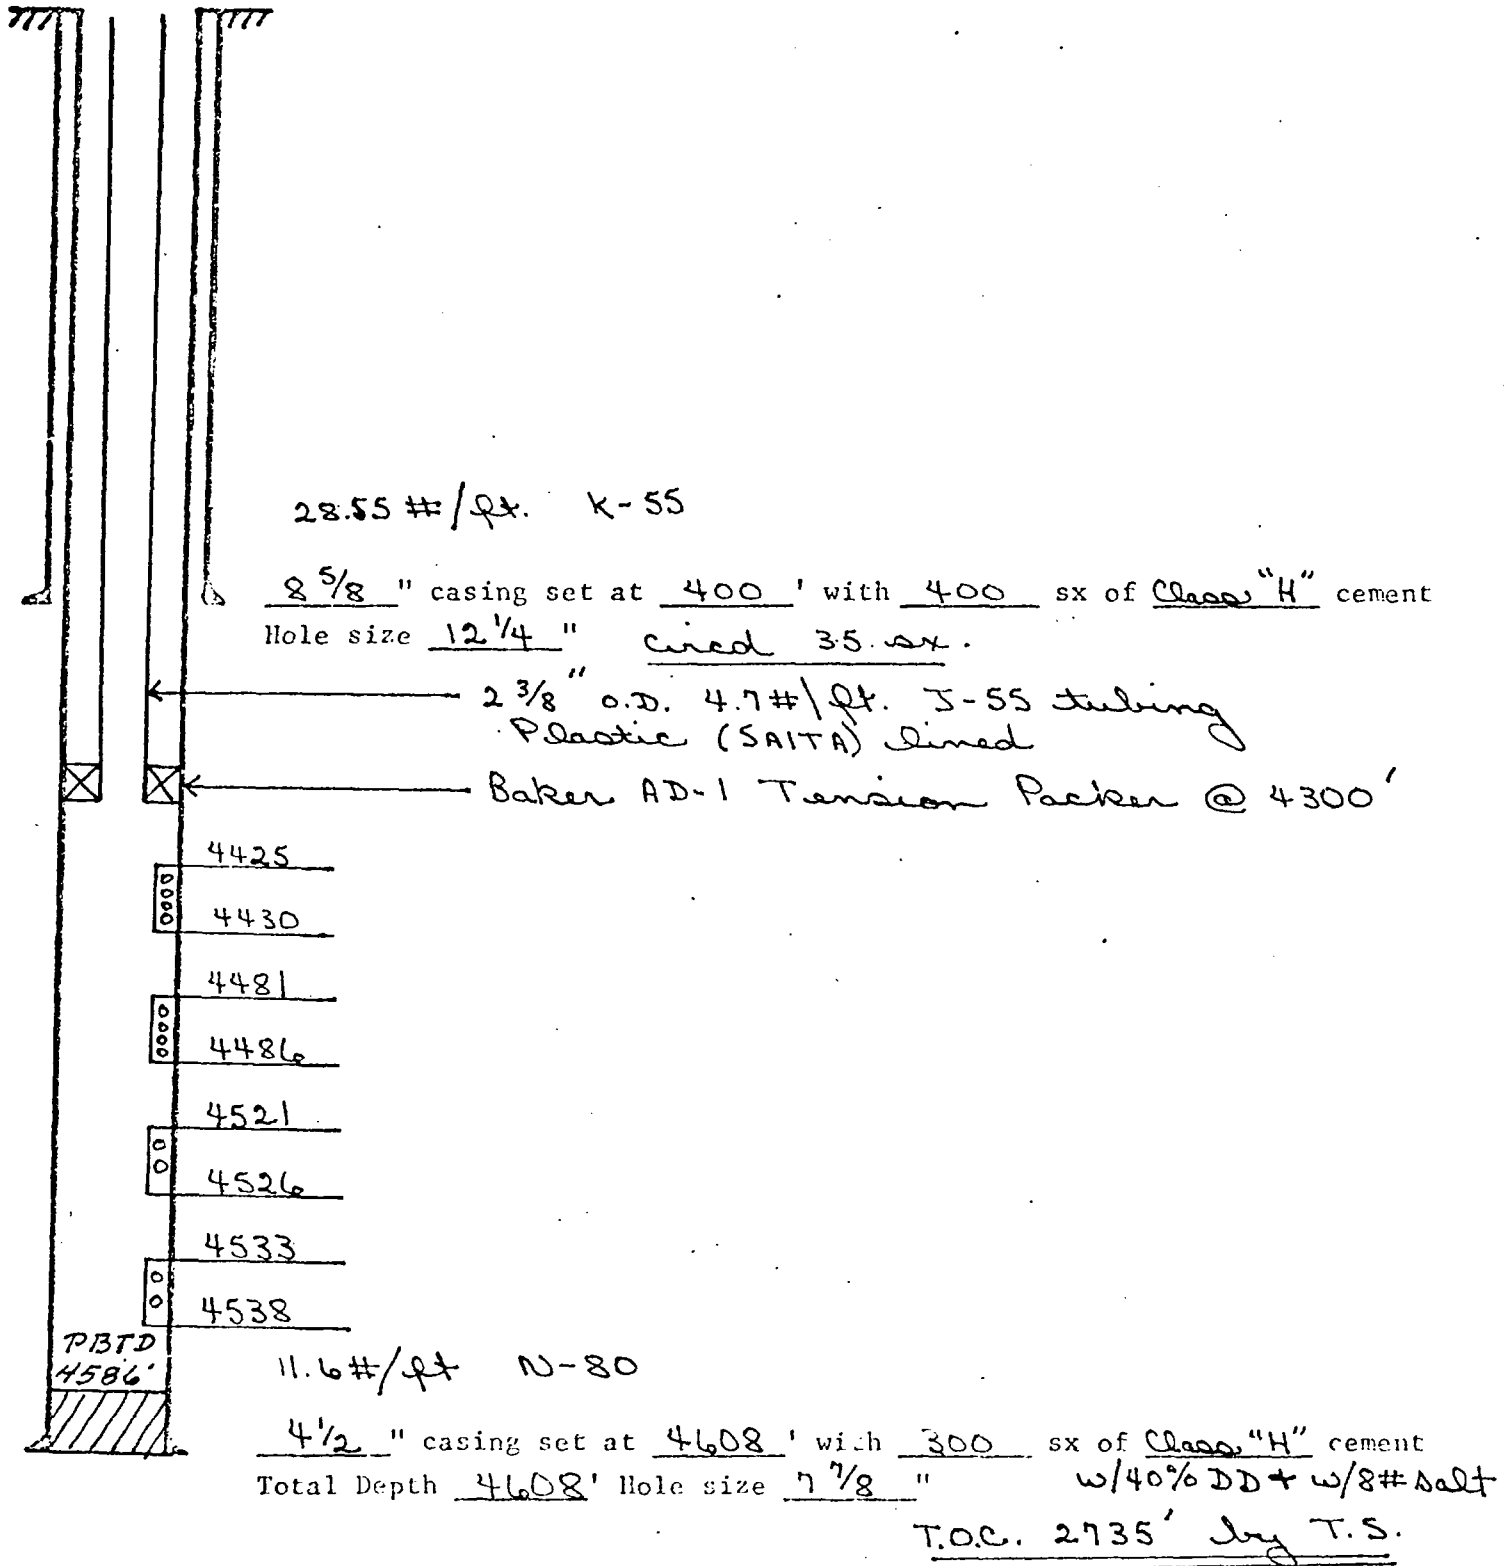 28.55 #/ft. K-55
8 5/8 " casing set at 400 ' with 400 sx of Class "H" cement
Hole size 12 1/4 " Circd 35 sx.
2 3/8" O.D. 4.7#/ft. J-55 tubing
Plastic (SAITA) lined
Baker AD-1 Tension Packer @ 4300'
4425
4430
4481
4486
4521
4526
4533
4538
PBTD
4586'
11.6#/ft N-80
4 1/2 " casing set at 4608 ' with 300 sx of Class "H" cement
Total Depth 4608' Hole size 7 7/8 " w/40% DD + w/8# salt
T.O.C. 2735' by T.S.